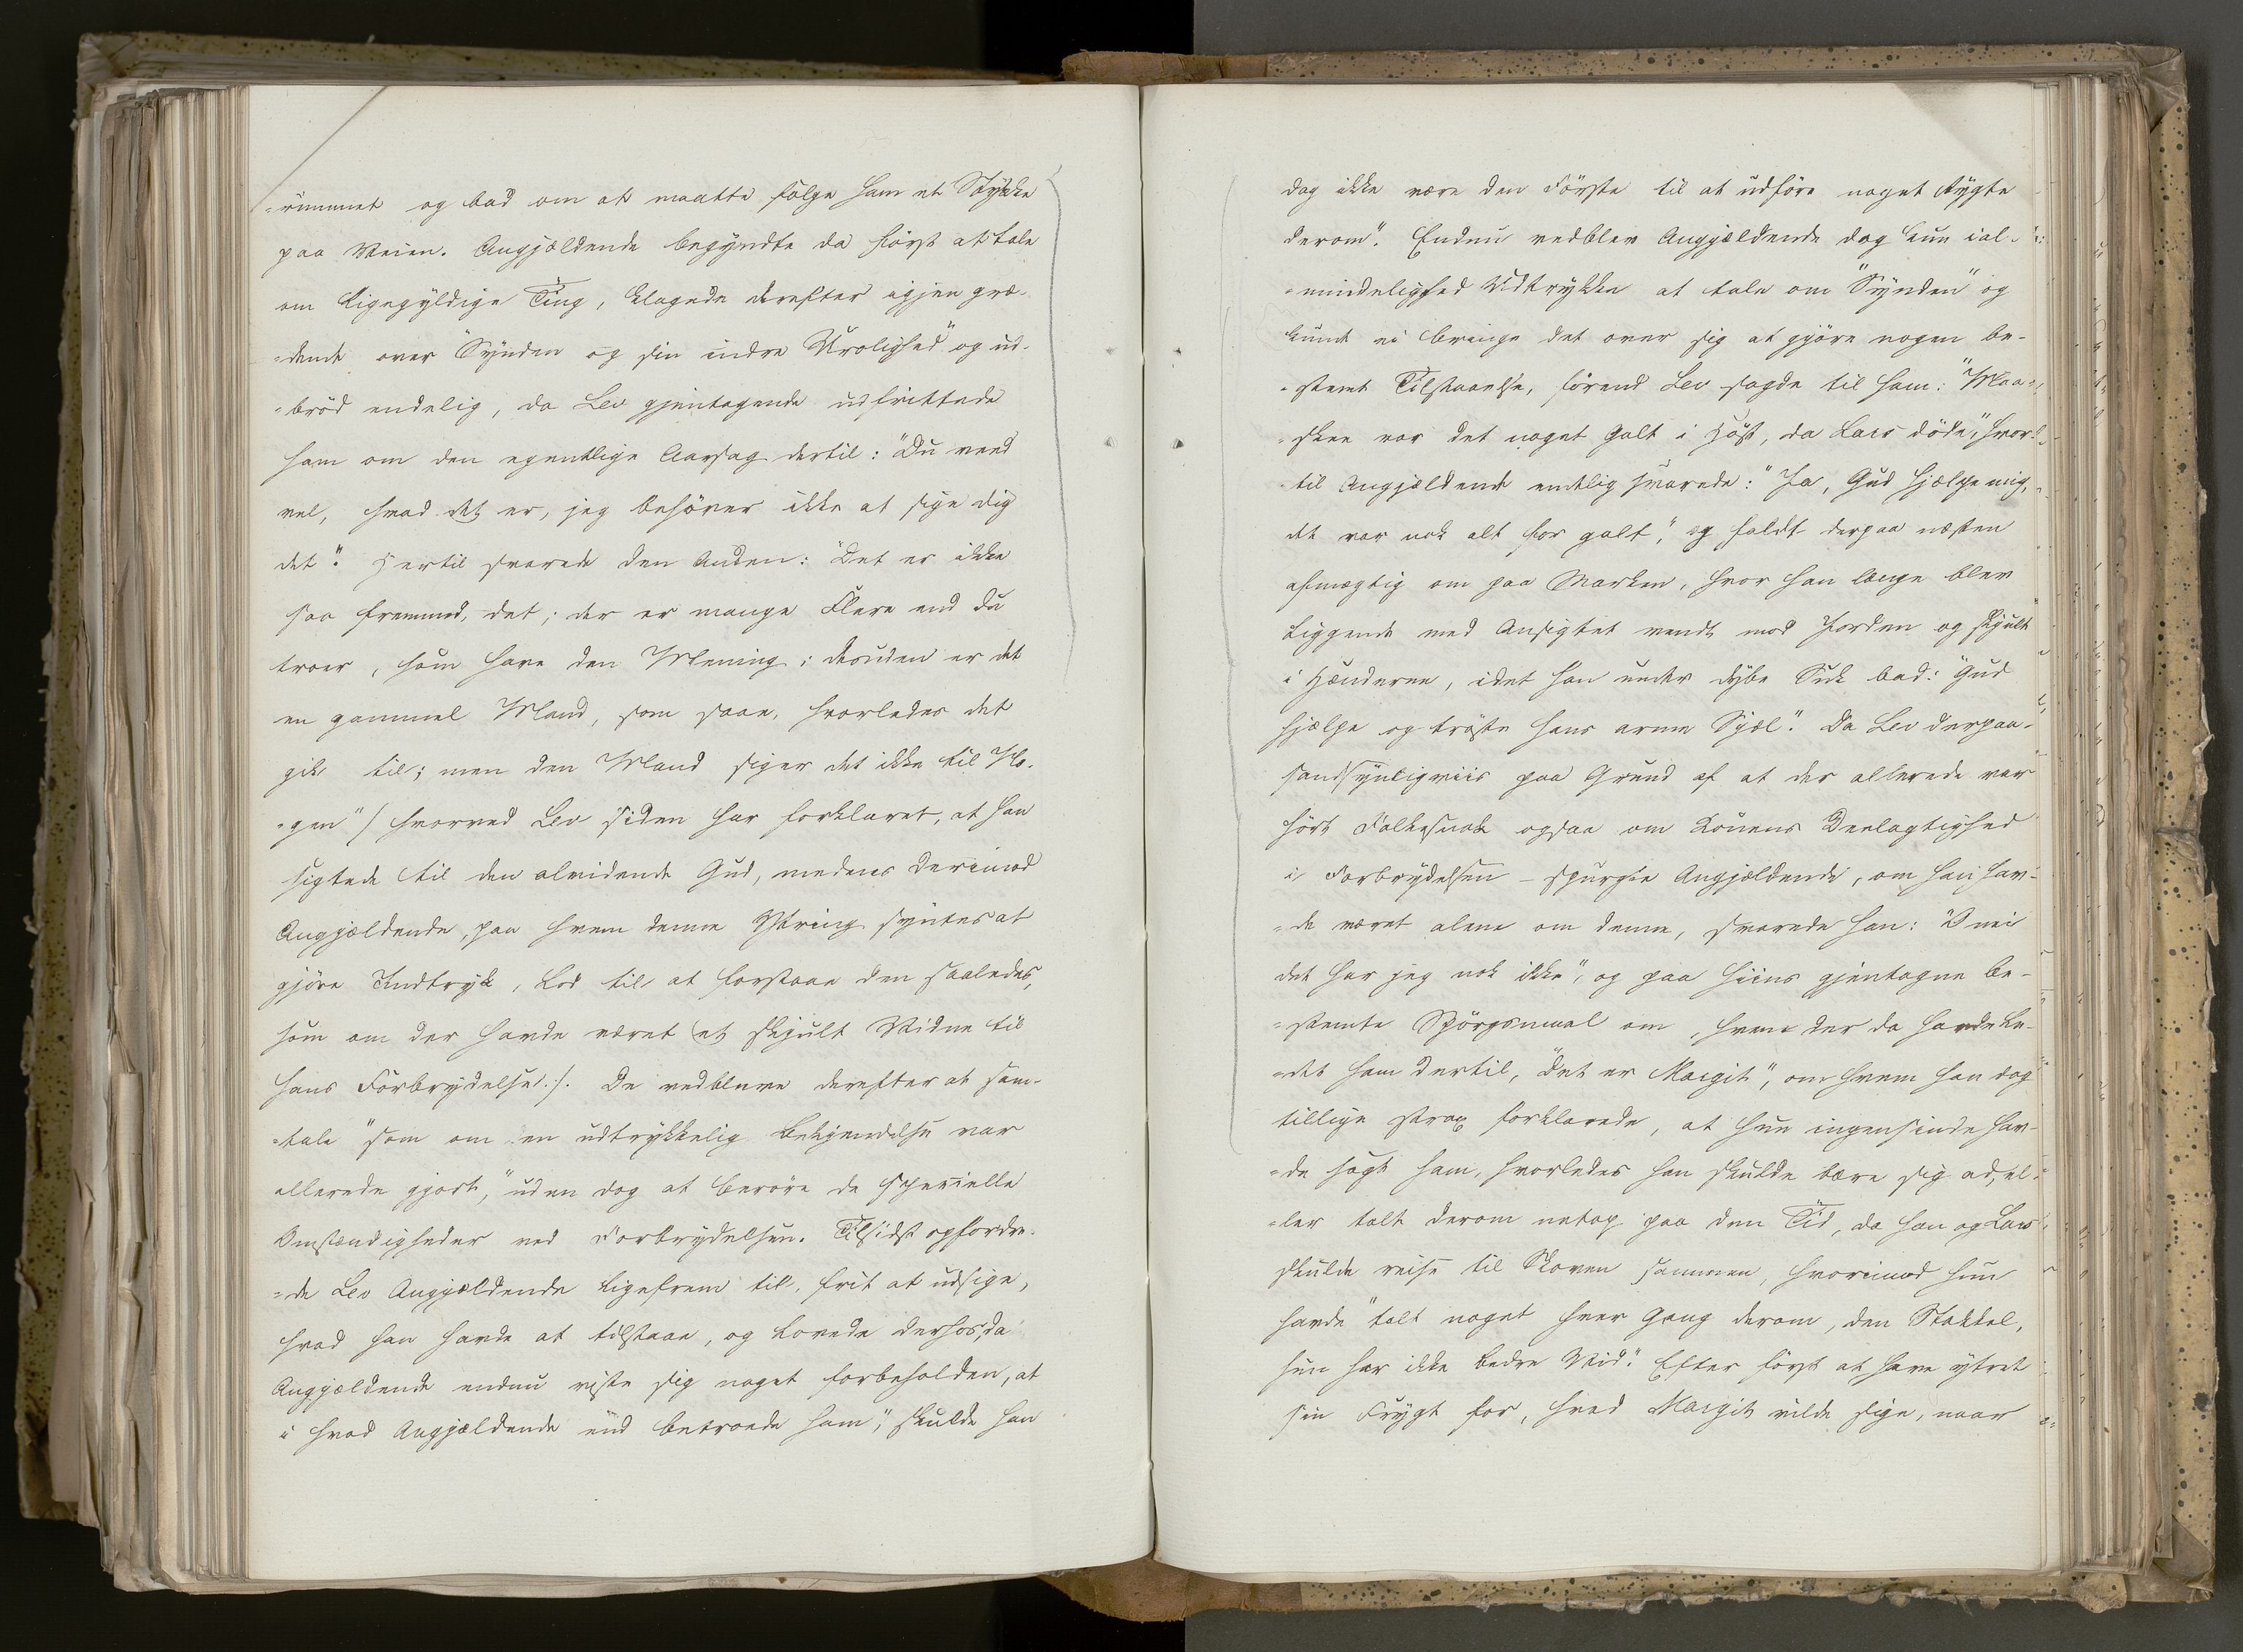 -rummet og bad om at maatte følge ham et Stykke
paa Veien. Angjældende begyndte da først at tale
om ligegyldige Ting, klagede derefter igjen græ-
-dende over "Synden og sin indre Urolighed" og ud-
-brød endelig, da Lev gjentagende udfrittede
ham om den egentlige Aarsag dertil: "Du veed
vel, hvad det er, jeg behøver ikke at sige dig
det". Hertil svarede den Anden: "Det er ikke
saa fremmed, det; der er mange Flere end du
troer, som have den Mening; desuden er det
en gammel Mand, som saae, hvorledes det
gik til; men den Mand siger det ikke til No-
-gen" /: hvorved Lev siden har forklaret, at han
sigtede til den alvidende Gud, medens derimod
Angjældende, paa hvem denne Yttring syntes at
gjøre Indtryk, lod til at forstaae den saaledes,
som om der havde været et skjult Vidne til
hans Forbrydelse :/. De vedbleve derefter at sam-
-tale "som om en udtrykkelig Bekjendelse var
allerede gjort," uden dog at berøre de specielle
Omstændigheder ved Forbrydelsen. Tilsidst opfordre-
-de Lev Angjældende ligefrem til, frit at udsige,
hvad han havde at tilstaae, og lovede derhos, da
Angjældende endnu viste sig noget forbeholden, at
"i hvad Angjældende end betroede ham," skulde han
dog ikke være den Første til at udføre noget Rygte
derom". Endnu vedblev Angjældende dog kun i al-
-mindelighed Udtrykke at tale om "Synden" og
kunde ei bringe det over sig at gjøre nogen be-
-stemt Tilstaaelse, førend Lev sagde til ham: "Maa-
-skee var det noget Galt i Høst, da Lars døde," hvor-
-til Angjældende endelig svarede: "Ja, Gud hjælpe mig,
det var nok alt for galt", og faldt derpaa næsten
afmægtig om paa Marken, hvor han længe blev
liggende med Ansigtet vendt mod Jorden og skjult
i Hænderne, idet han under dybe Suk bad: "Gud
hjælpe og trøste hans arme Sjæl". Da Lev derpaa -
sandsynligviis paa Grund af at der allerede var
hørt Folkesnak ogsaa om Konens Deelagtighed
i Forbrydelsen - spurgte Angjældende, om han hav-
-de været alene om denne, svarede han: "O nei
det har jeg nok ikke", og paa Hiins gjentagne be-
-stemte Spørgsmaal om, hvem der da havde le-
-det ham dertil, "det er Margit", om hvem han dog
tillige strax forklarede, at hun ingensinde hav-
-de sagt ham, hvorledes han skulde bære sig ad, el-
-ler talt derom netop paa den Tid, da han og Lars
skulde reise til Skoven sammen, hvorimod hun
havde "talt noget hver Gang derom, den Stakkel,
hun har ikke bedre Vid". Efter først at have ytret
sin Frygt for, hvad Margit vilde sige, naar